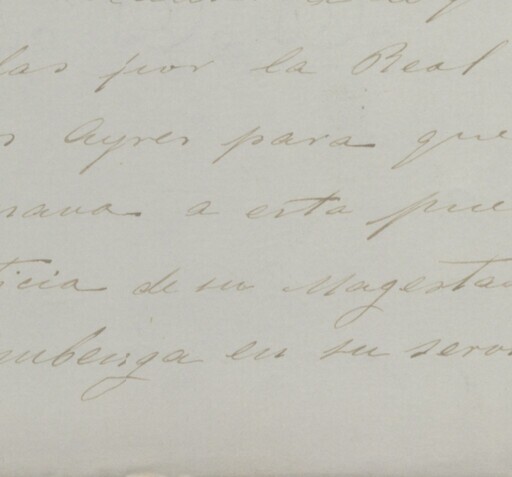 las por la Real
s Ayres para que
rava a esta pue
ticia de su Magestad
mbenga en su servi